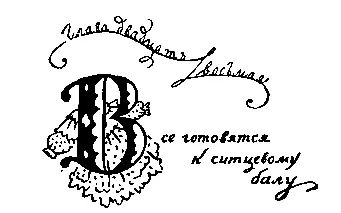 Глава двадцать восьмая
Все готовятся
к ситцевому
балу